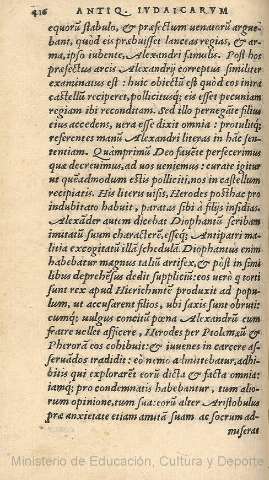 416 ANTIQ. IVDAICARVM
equorū stabulo, & præfectum uenatorū argue-
bant, quòd eis præbuisset lanceas regias, & ar-
ma, ipso iubente, Alexandri famulis. Post hos
præfectus arcis Alexandrij correptus similiter
examinatus est: huic obiectū est quòd eos intra
castellū reciperet, pollicitusq; eis esset pecuniam
regiam ibi reconditam. Sed illo pernegāte filius
eius accedens, uera esse dixit omnia: protulitq;
referentes manū Alexandri literas in hāc sen-
tentiam. Quimprimū Deo fauēte perfecerimus
quæ decreuimus, ad uos ueniemus: curate igitur
ut quēadmodum estis polliciti, nos in castellum
recipiatis. His literis uisis, Herodes posthac pro
indubitato habuit, paratas sibi à filijs insidias.
Alexāder autem dicebat Diophantū scribam
imitatū suum characterē, esseq; Antipatri ma-
litia excogitatā illā schedulā. Diophantus enim
habebatur magnus talis artifex, & pòst in simi
libus deprehēsus dedit supplicīu: eos uerò q torti
sunt rex apud Hierichuntē produxit ad popu-
lum, ut accusarent filios, ubi saxis sunt obruti:
cumq; uulgus concitū pœna Alexandrū cum
fratre uellet afficere, Herodes per Ptolemæū &
Pherorā eos cohibuit: & iuuenes in carcere as-
seruādos tradidit: eò nemo admittebatur, adhi-
bitis qui explorarēt eorū dicta & facta omnia:
iamq; pro condemnatis habebantur, tum alio-
rum opinione, tum sua: eorū alter Aristobulus
præ anxietate etiam amitā suam ac socrum ad-
miserat
Ministerio de Educación, Cultura y Deporte